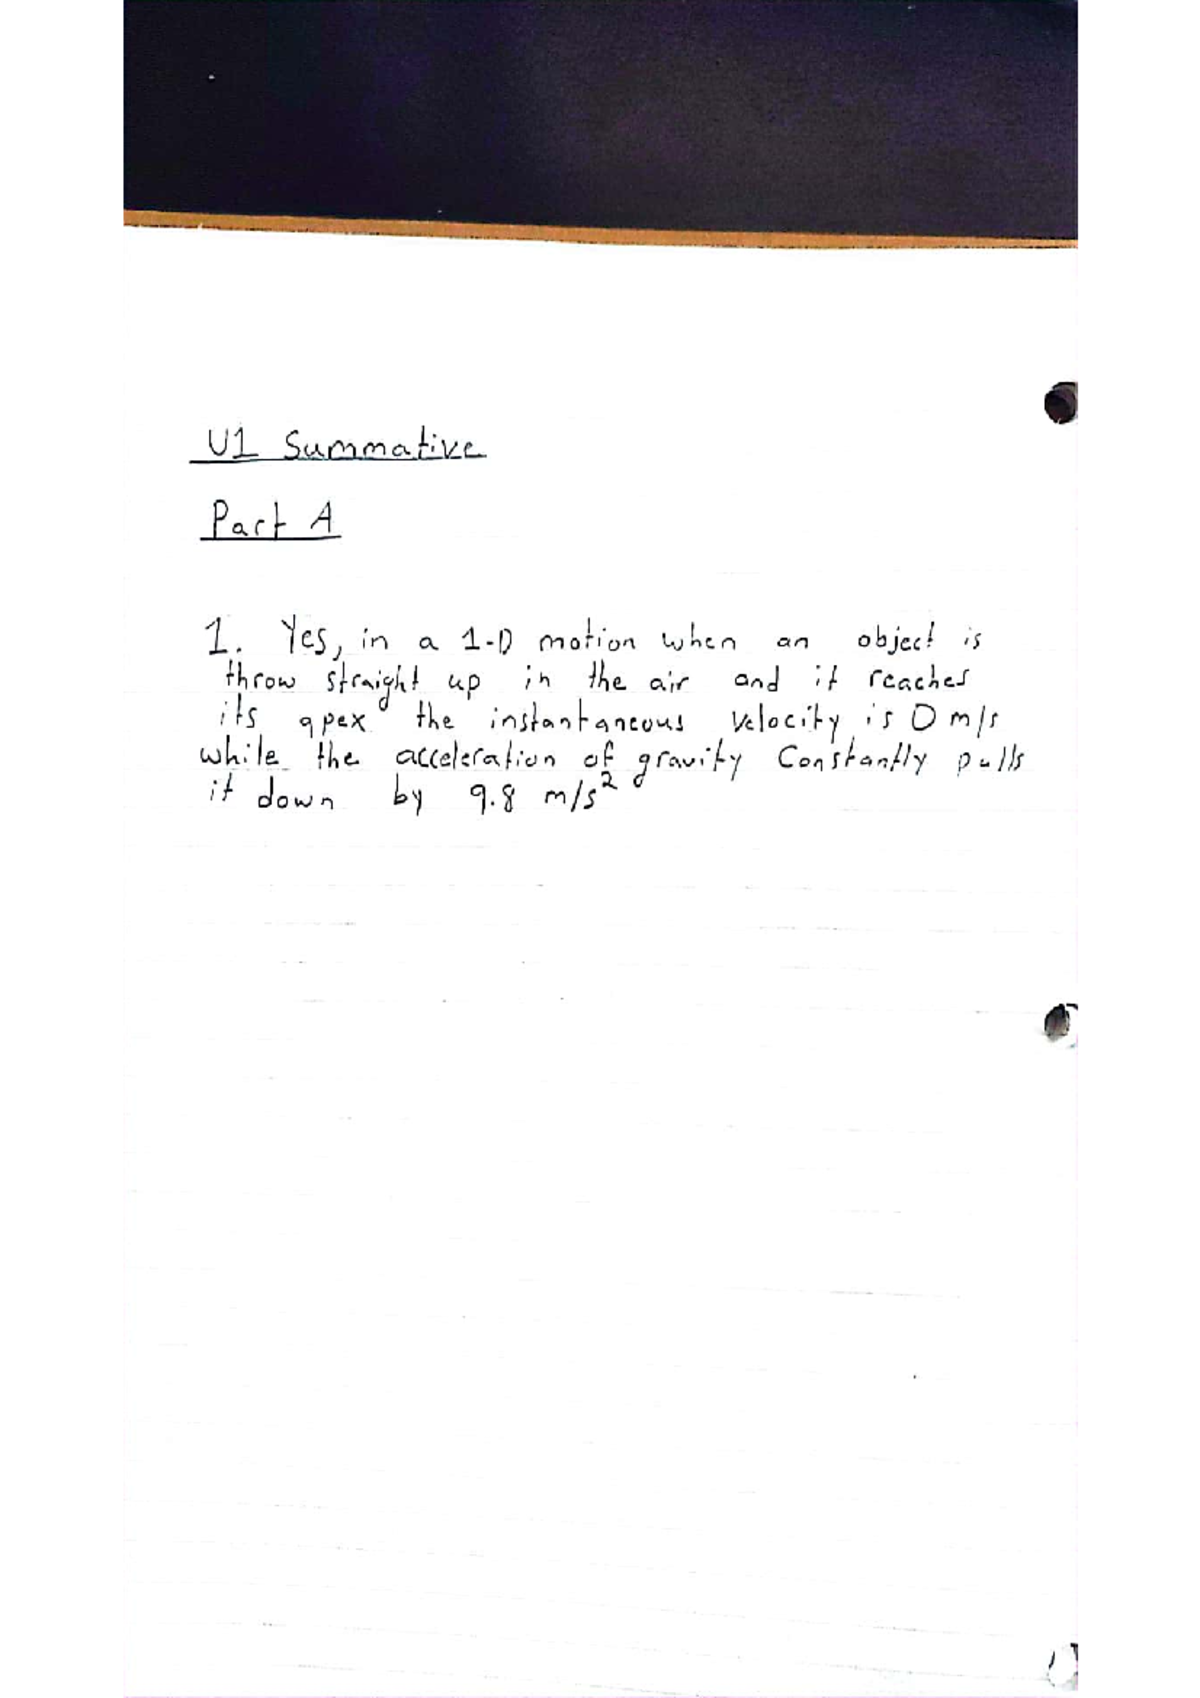 U1 Summative
Part A
1. Yes, in a 1-D motion when an object is
throw straight up in the air and it reaches
its apex the instantaneous velocity is 0 m/s
while the acceleration of gravity constantly pulls
it down by 9.8 m/s²